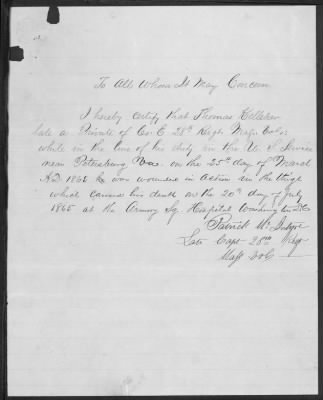 To All Whom It May Concern
I hereby certify that Thomas Kelleher
late a Private of Co. E 28th Regt Mass Vols
while in the line of his duty in the U S Service
near Petersburg Va. on the 25th day of March
A.D. 1865 he was wounded in action in the thigh
which caused his death on the 20th day of July
1865 at the Armory Sq Hospital Washington D.C.
Patrick McIntyre
Late Capt 28th Regt
Mass Vols